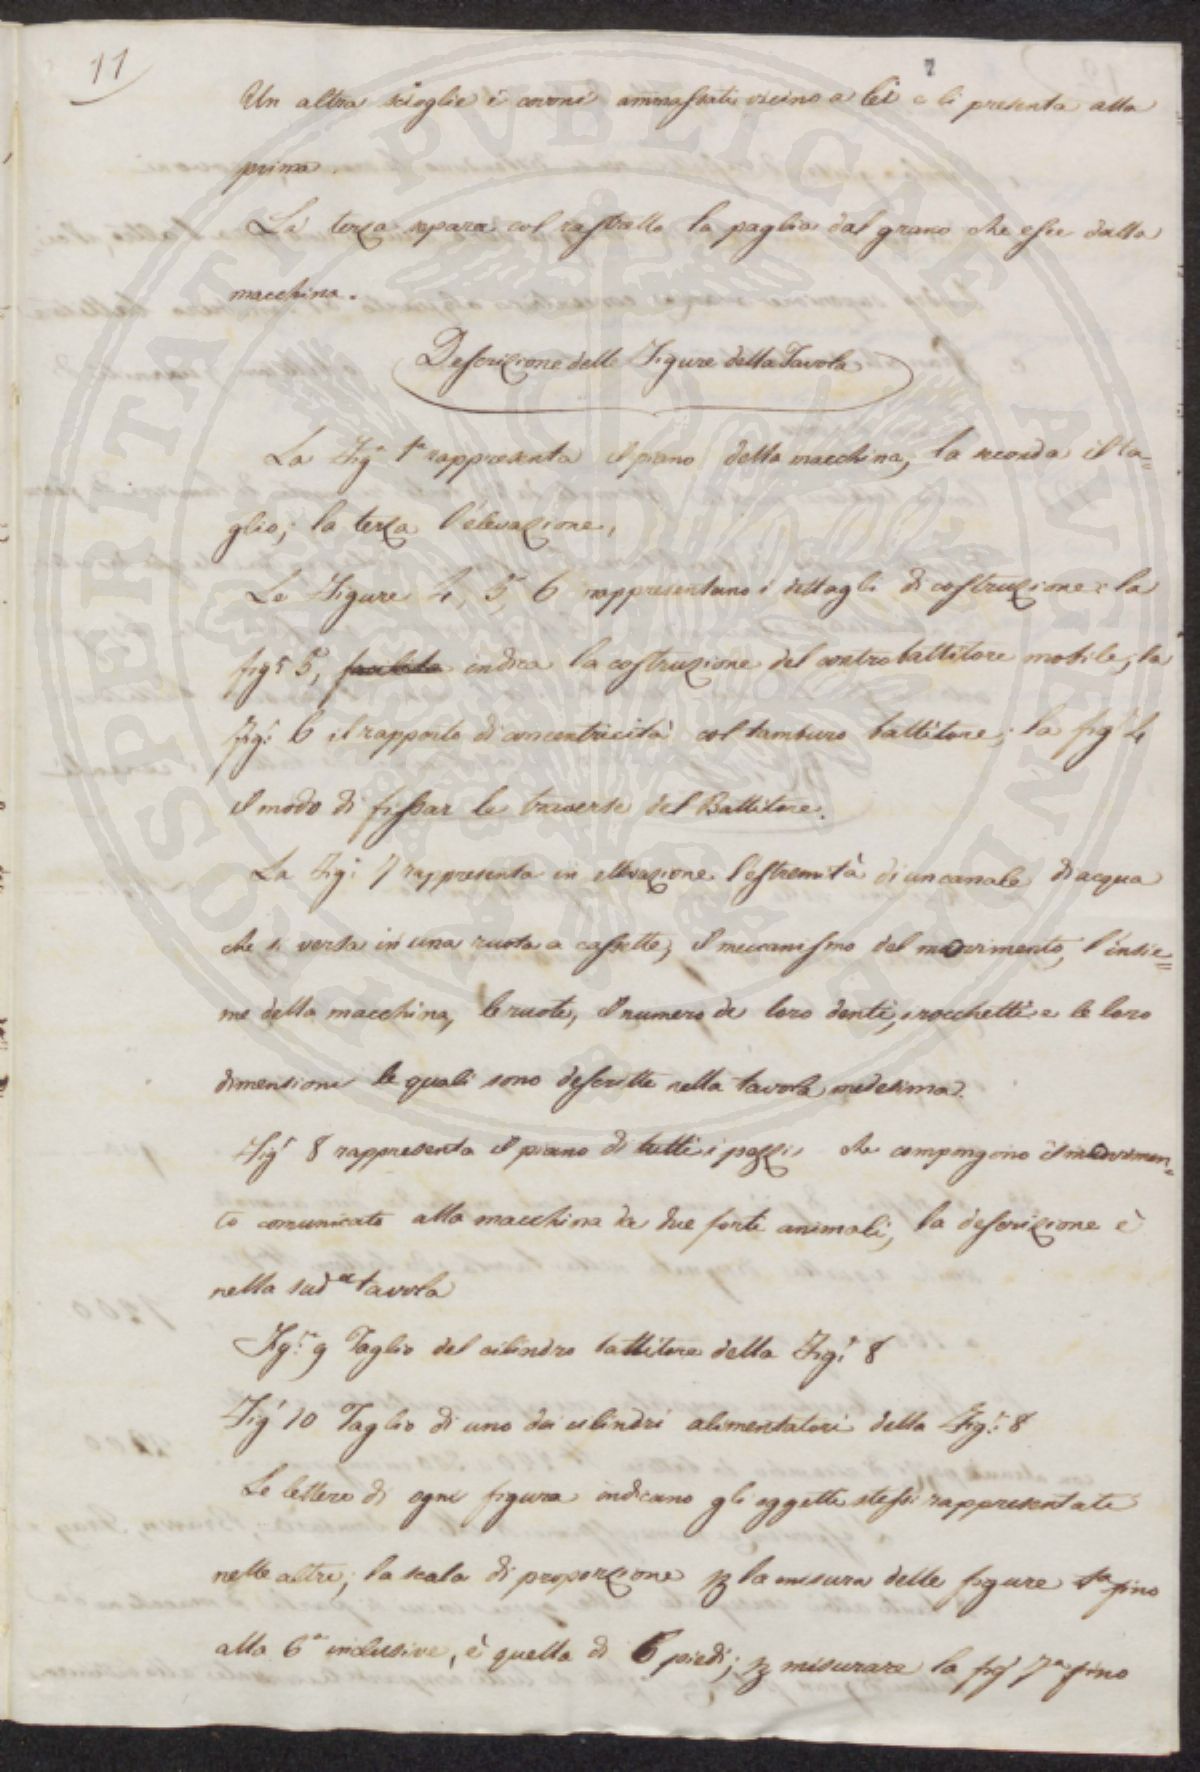 11
7
Un altra scioglie i covoni ammassati vicino a lei e li presenta alla
prima.
La terza separa col rastrello la paglia dal grano che esce dalla
macchina.
Descrizione delle Figure della Tavola
La Fig.ª 1ª rappresenta il piano della macchina, la seconda il ta=
glio; la terza l'elevazione,
Le Figure 4, 5, 6 rappresentano i dettagli di costruzione: la
fig.ª 5, indica la costruzione del controbattitore mobile; la
fig.ª 6 il rapporto di concentricità col tamburo battitore; la fig.ª 4
il modo di fissar le traverse del Battitore.
La Fig.ª 7 rappresenta in elevazione l'estremità di un canale d'acqua
che si versa in una ruota a cassette; il meccanismo del movimento, l'insie=
me della macchina, le ruote, il numero de loro denti, i rocchetti e le loro
dimensioni le quali sono descritte nella tavola medesima.
Fig.ª 8 rappresenta il piano di tutti i pezzi, che compongono il movimen=
to comunicato alla macchina da due forti animali, la descrizione è
nella sud.ª tavola
Fig.ª 9 Taglio del cilindro battitore della Fig.ª 8
Fig.ª 10 Taglio di uno dei cilindri alimentatori della Fig.ª 8
Le lettere di ogni figura indicano gli oggetti stessi rappresentati
nelle altre; la scala di proporzione p la misura delle figure 1ª fino
alla 6ª inclusive, è quella di 6 piedi; p misurare la fig.ª 7ª fino
PROSPERITATI PVBLICAE AVGENDAE